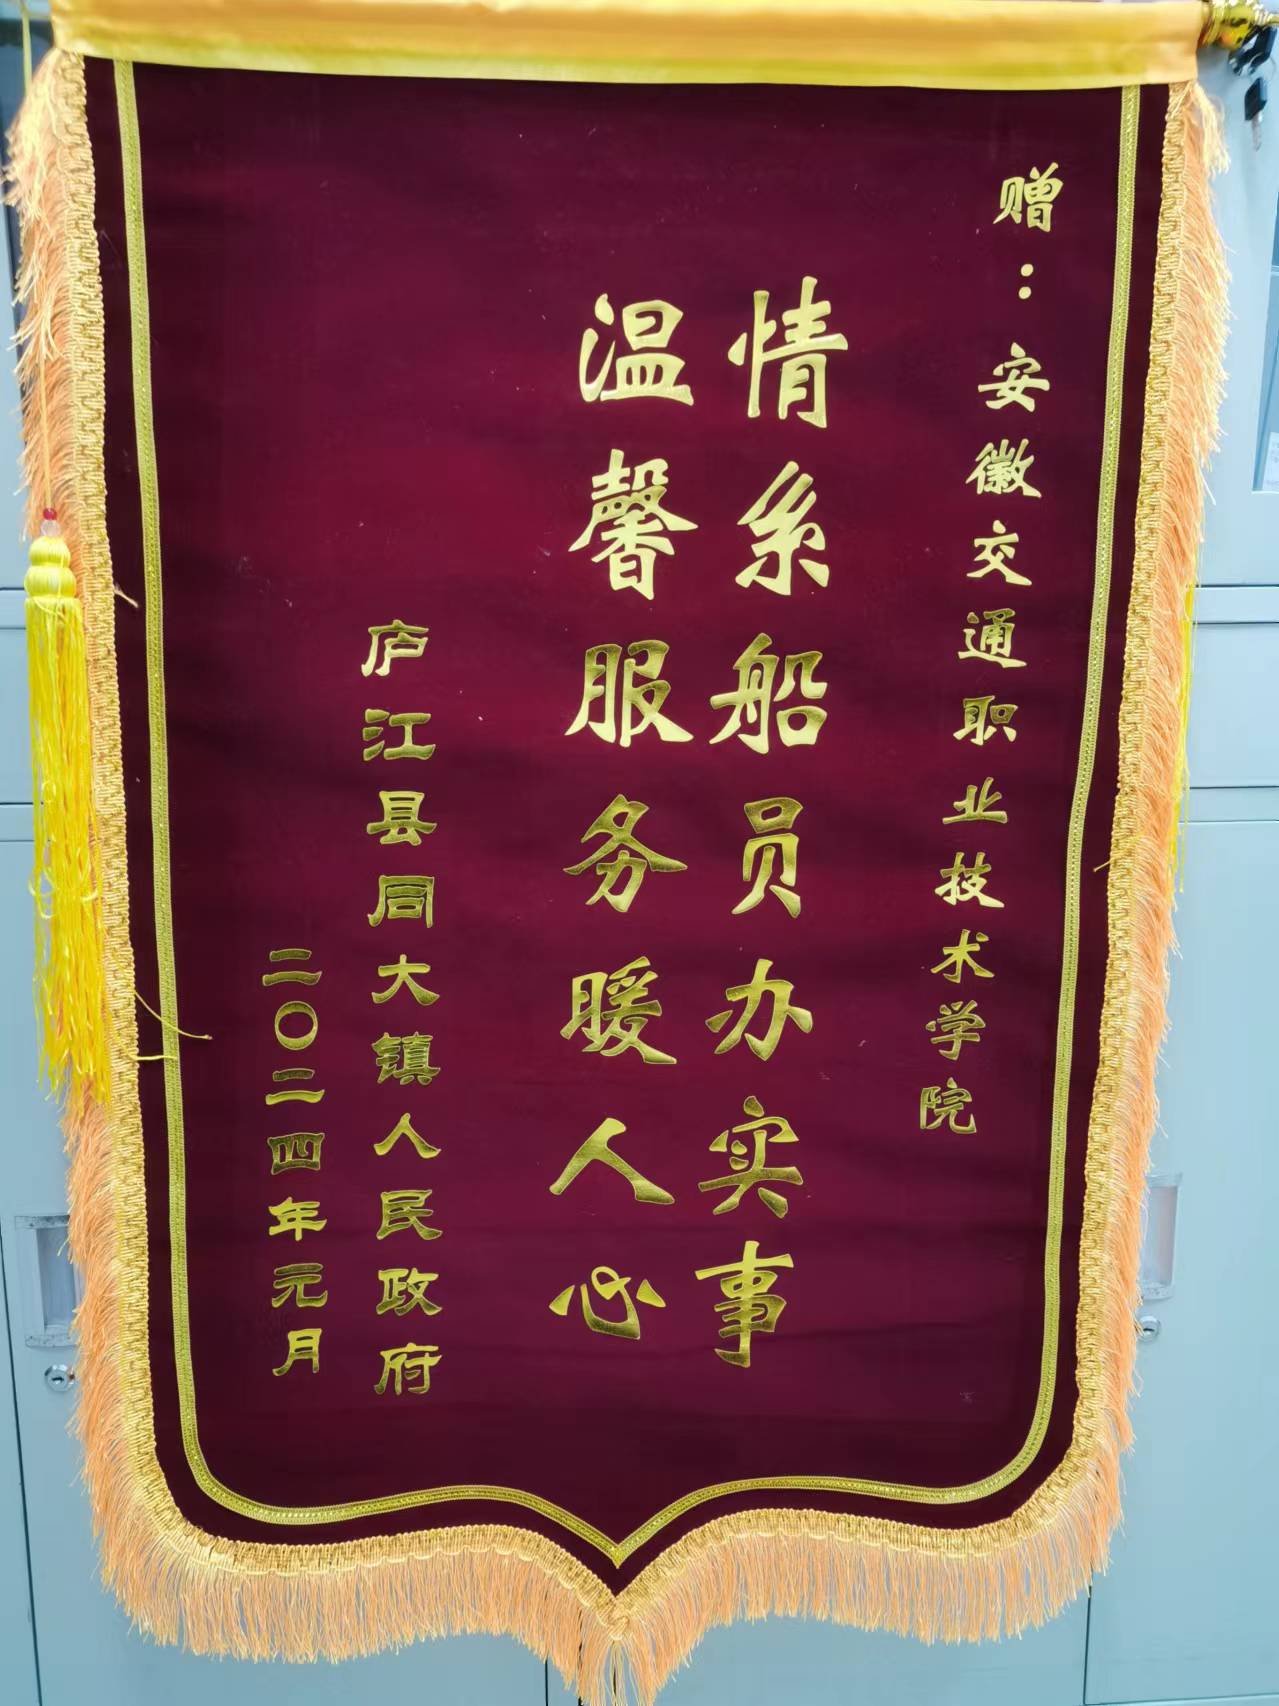 赠：安徽交通职业技术学院
情系船员办实事
温馨服务暖人心
庐江县同大镇人民政府
二〇二四年元月